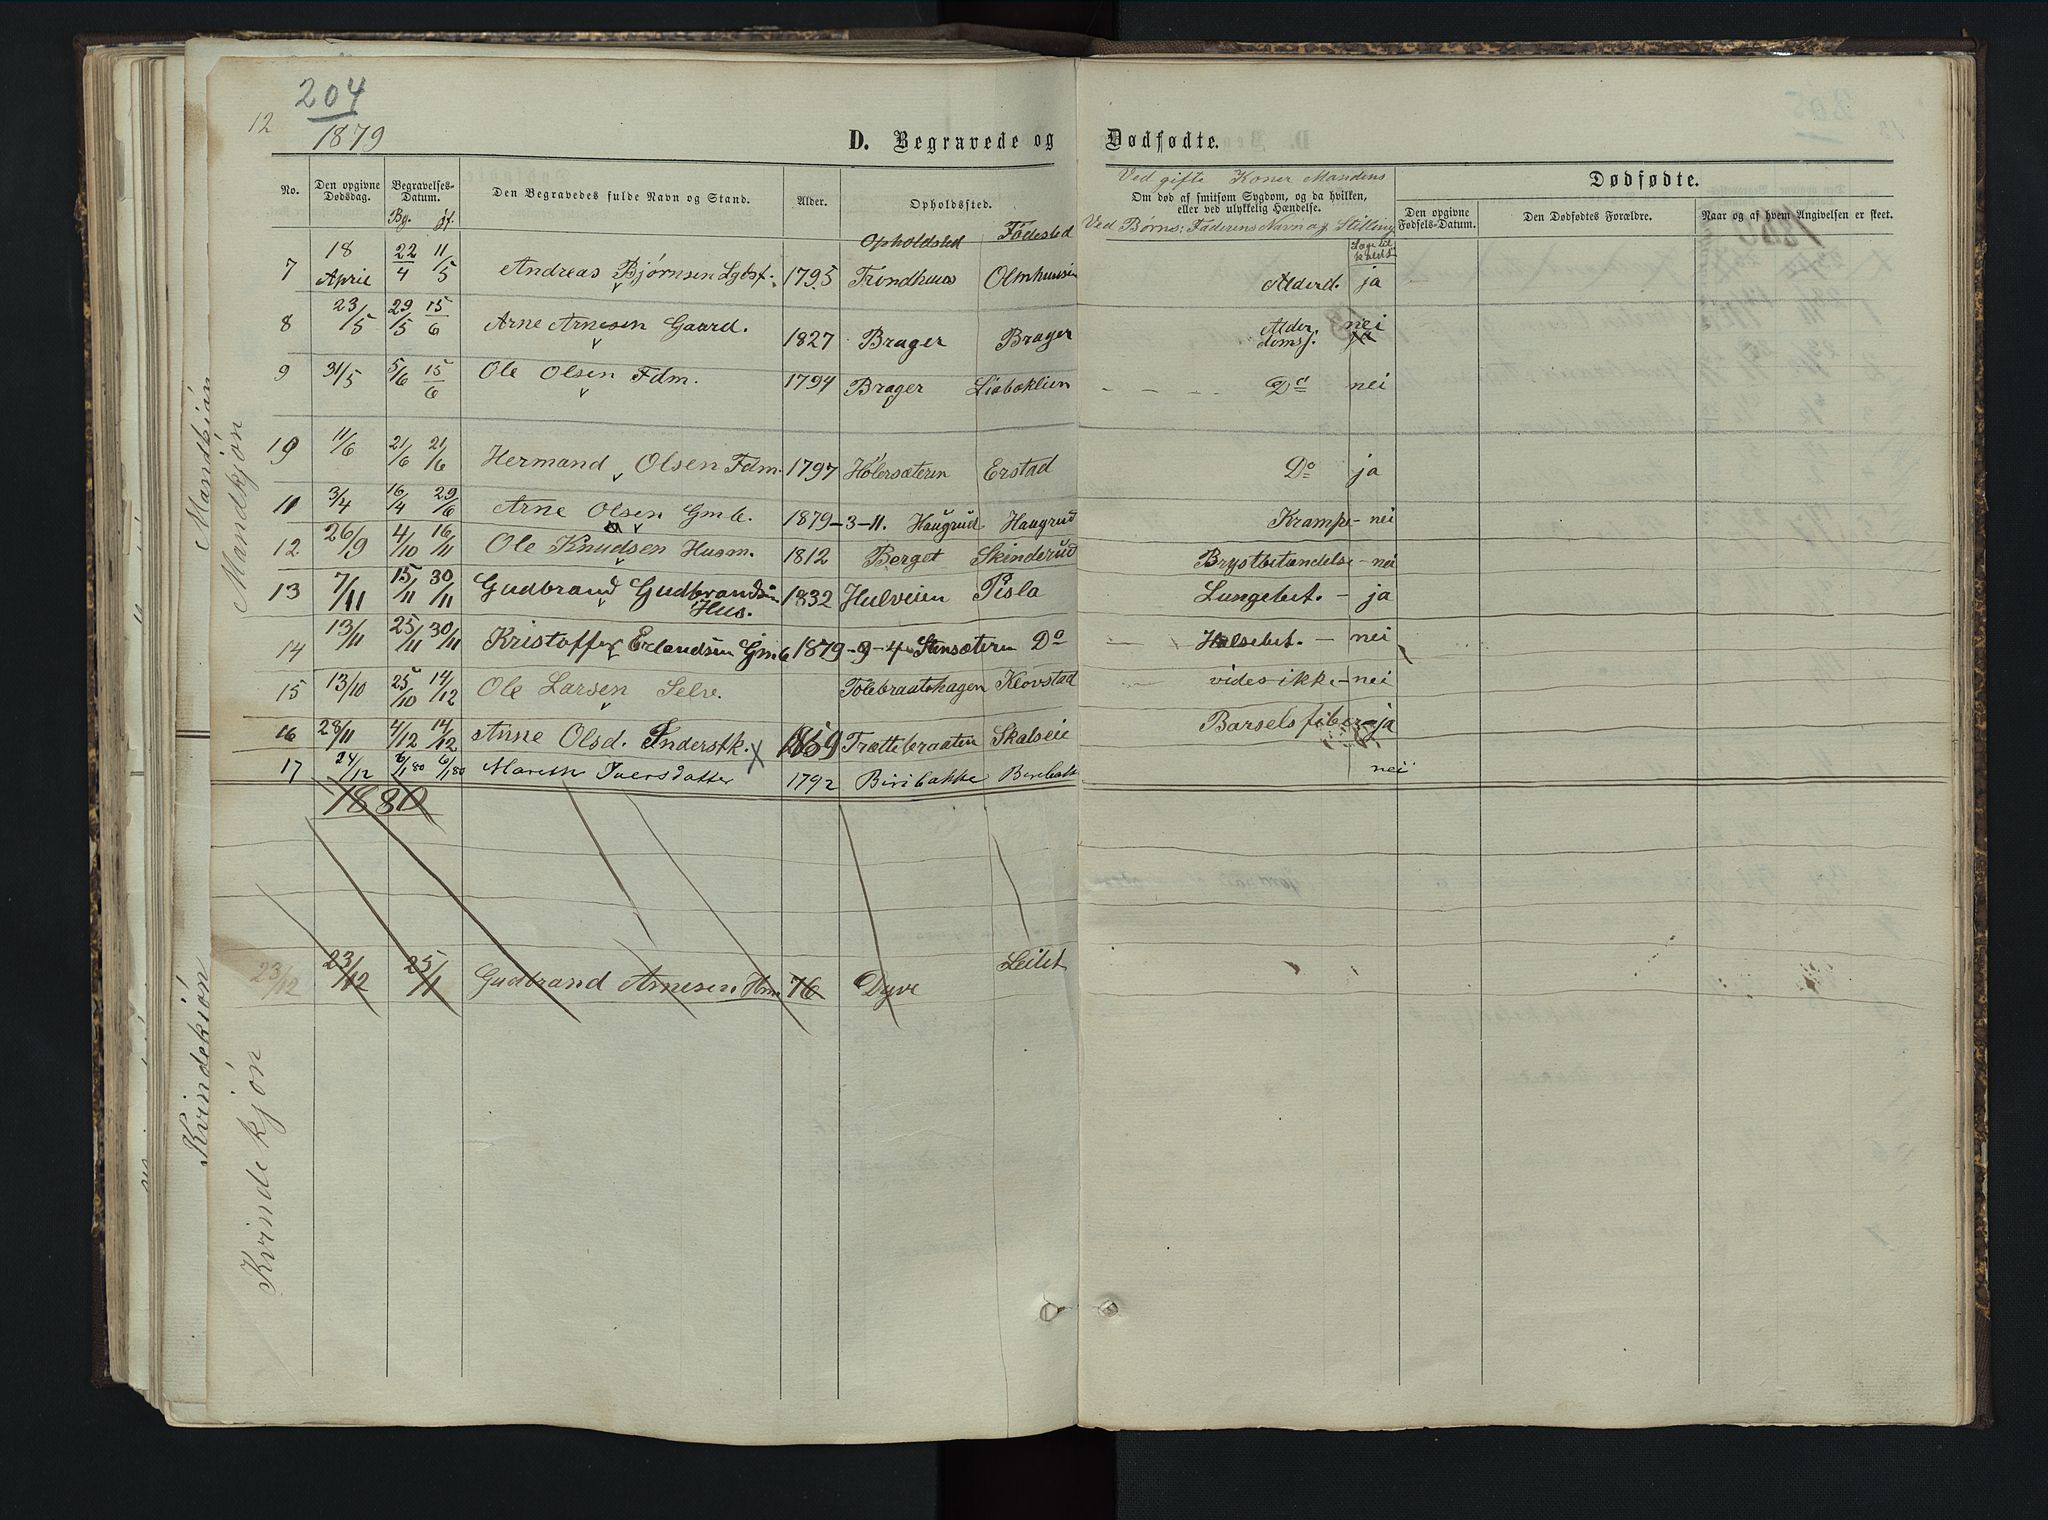 204
12
1879
D. Begravede og Dødfødte.
No. Den opgivne Dødsdag. Begravelses-Datum. Den Begravedes fulde Navn og Stand. Alder. Opholdssted.
Bg. jf. Opholdsted Fødested
Ved gifte Koner Mandens
Om død af smitsom Sygdom, og da hvilken, eller ved ulykkelig Hændelse.
Ved Børns: Faderens Navn og Stilling
Dødfødte.
Den opgivne Fødsels-Datum. Den Dødfødtes Forældre. Naar og af hvem Angivelsen er skeet.
7 18 April 22/4 11/5 Andreas Bjørnsen Lgbst. 1795 Trondhuus Olmhuusen Alderd. ja
8 23/5 29/5 15/6 Arne Arnesen Gaard. 1827 Brager Brager Alderdomss. nei ja
9 31/5 5/6 15/6 Ole Olsen Fdm. 1794 Brager Liabæklien Do nei
10 11/6 21/6 21/6 Hermand Olsen Fdm. 1797 Holersæteren Erstad Do ja
11 3/4 16/4 29/6 Arne Olsen Gmb. 1879-3-11. Haugrud Haugrud Krampe - nei
12 26/9 4/10 16/11 Ole Knudsen Husm. 1812 Berget Skinderud Brystbetændelse - nei
13 7/11 15/11 30/11 Gudbrand Gudbrandsen Hus. 1832 Hulveien Pisla Lungebet. - ja
14 13/11 25/11 30/11 Kristoffer Erlandsen Gmb 1879-9-4 Stensæteren Do Halsebet. - nei
15 13/10 25/10 14/12 Ole Larsen Selv. Tolebraatehagen Klovstad vides ikke - nei
16 28/11 4/12 14/12 Anne Olsd. Inderstk. X 1859 Trættebraaten Skalseie Barselsfiber - ja
17 24/12 6/1 80 6/1 80 Mareth Iversdatter 1792 Biribakke Biribak nei
1880
23/12 23/12 25/1 Gudbrand Arnesen Hm 76 Dyve Leilet
Mandkjøn
Mandkjøn
Kvindekjøn
Kvindekjøn